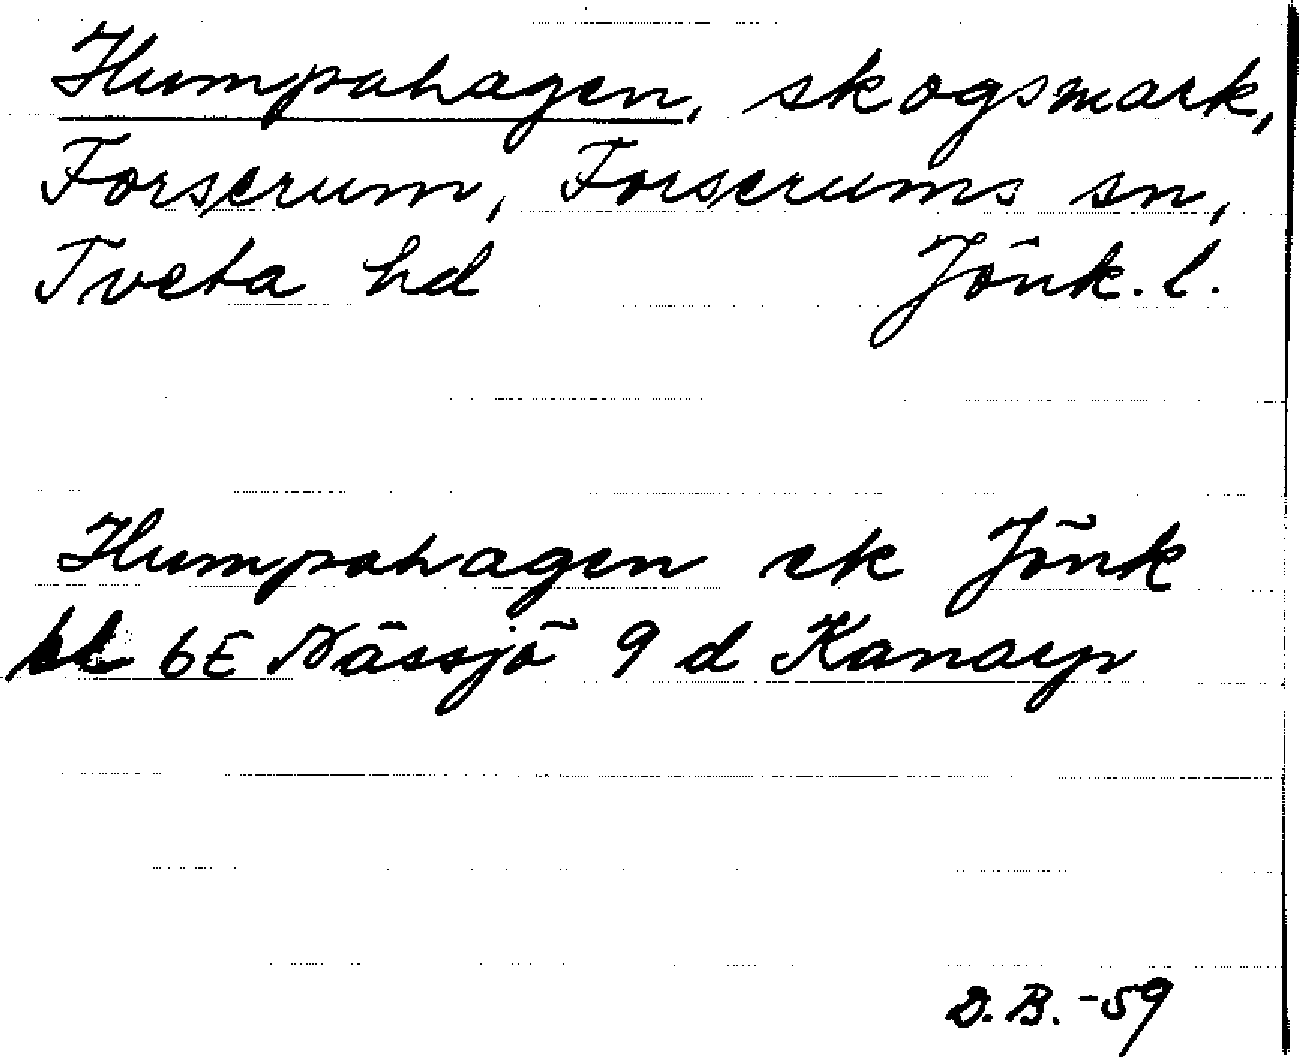 Humpahagen, skogsmark,
Forserum, Forserums sn,
Tveta hd Jönk. l.
Humpahagen ek Jönk
bl 6E Nässjö 9 d Kanarp
D.B. -59